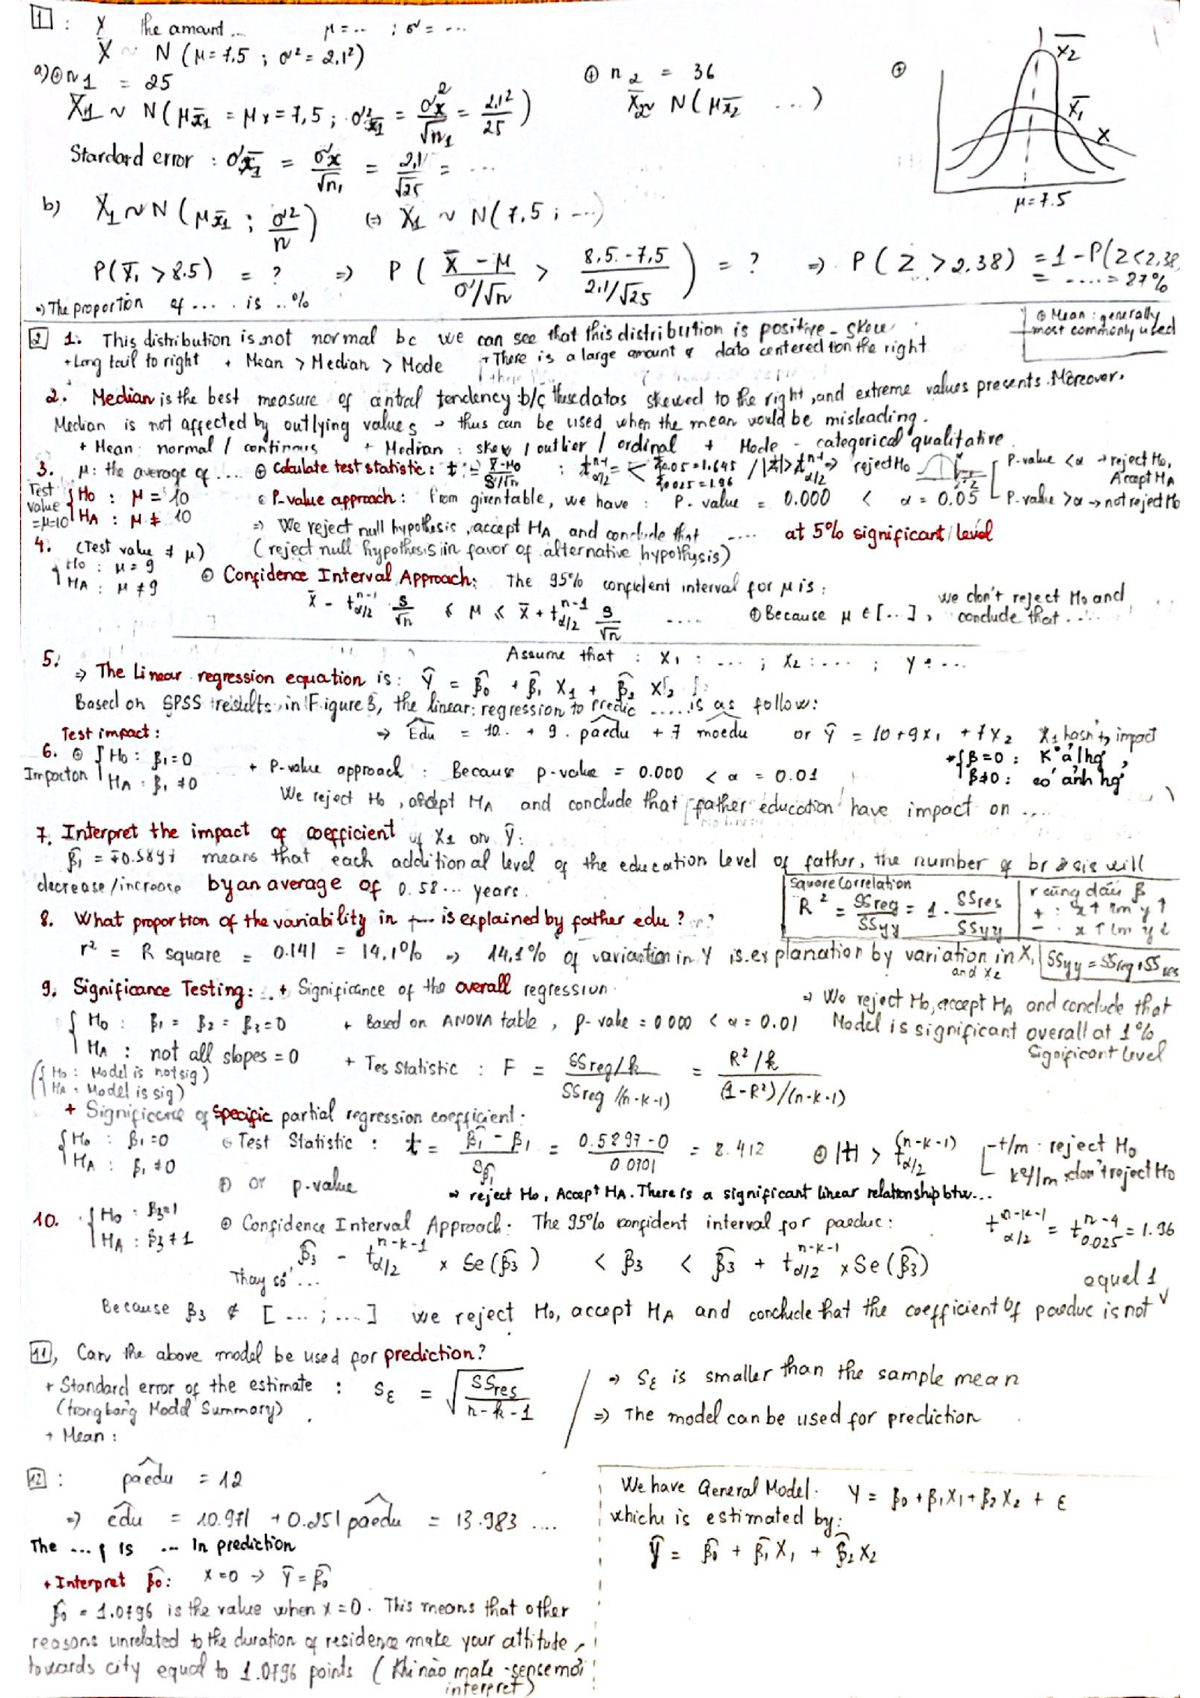 1 : X the amount ... μ = ... ; σ = ...
X ~ N (μ = 7,5 ; σ² = 2,1²)
a) ⊕ n1 = 25
⊕ n2 = 36
X̄1 ~ N (μx̄1 = μx = 7,5 ; σ²x̄1 = σ²x / √n1 = 2,1² / 25)
X̄2 ~ N (μx̄2 ...)
X̄2
X̄1
X
μ = 7.5
Standard error : σx̄1 = σx / √n1 = 2,1 / √25 = ...
b) X̄1 ~ N (μx̄1 ; σ² / n) (=) X̄1 ~ N (7,5 ; ...)
P(X̄1 > 8.5) = ? => P ( X̄ - μ / σ/√n > 8,5 - 7,5 / 2.1/√25 ) = ? => P ( Z > 2,38) = 1 - P(Z < 2,38)
= ..... = 27%
=) The proportion of .... is ..%
⊕ Mean : generally most commonly used
2 1. This distribution is not normal bc we can see that this distribution is positive - skew
+ Long tail to right + Mean > Median > Mode + There is a large amount of data centered on the right
2. Median is the best measure of central tendency b/c these datas skewed to the right, and extreme values presents. Moreover,
Median is not affected by outlying values → thus can be used when the mean would be misleading.
+ Mean: normal / continous + Median : skew / outlier / ordinal + Mode - categorical qualitative
3. μ: the average of .... ⊕ Calculate test statistic : t = X̄ - μ0 / S/√n ; t n-1 α/2 = < z0.05 = 1.645 z0.025 = 1.96 / |t| > t n-1 α/2 → reject H0
P-value < α → reject H0, Accept HA
Test value = μ = 10 { H0 : μ = 10 HA : μ ≠ 10
⊕ P-value approach : from given table, we have : P-value = 0.000 < α = 0.05
P-value > α → not reject H0
=> We reject null hypothesis, accept HA and conclude that .... at 5% significant level
(reject null hypothesis in favor of alternative hypothysis)
4. (Test value ≠ μ)
{ H0 : μ = 9 HA : μ ≠ 9
⊕ Confidence Interval Approach: The 95% confident interval for μ is :
X̄ - t n-1 α/2 s/√n ≤ μ ≤ X̄ + t n-1 α/2 s/√n .... ⊕ Because μ ∈ [...] , we don't reject H0 and conclude that ...
5. Assume that : X1 : ... ; X2 : ... ; Y : ...
=> The Linear regression equation is : Ŷ = β̂0 + β̂1 X1 + β̂2 X2
Based on SPSS results, in Figure 3, the linear regression to predic ..... is as follow:
=> Edu = 10.. + 9. paedu + 7 moedu or Ŷ = 10 + 9x1 + 7x2
X1 hasn't impact
Test impact :
6. ⊕ { H0 : β1 = 0 HA : β1 ≠ 0
Impact on
+ P-value approach : Because p-value = 0.000 < α = 0.01
+ { β = 0 : K° ảlhg , β ≠ 0 : có ảnh hg
We reject H0, accept HA and conclude that father education have impact on ....
7. Interpret the impact of coefficient of X1 on Ŷ :
β̂1 = ∓0.5897 means that each additional level of the education level of father, the number of br & sis will
decrease/increase by an average of 0.58... years.
Square Correlation
R² = SSreg / SSyy = 1 - SSres / SSyy
r cùng dấu β
+ : x↑ lm y↑
- : x↑ lm y↓
8. What proportion of the variability in ... is explained by father edu ?
r² = R square = 0.141 = 14,1% => 14,1% of variation in Y is explanation by variation in X1 and X2
SSyy = SSreg + SSres
9. Significance Testing : + Significance of the overall regression
{ H0 : β1 = β2 = β3 = 0 HA : not all slopes = 0
+ Based on ANOVA table, p-value = 0.000 < α = 0.01
=> We reject H0, accept HA and conclude that Model is significant overall at 1% Significant level
( { H0 : Model is not sig) HA : Model is sig)
+ Tes Statistic : F = SSreg/k / SSreg /(n-k-1) = R²/k / (1-R²)/(n-k-1)
+ Significance of Specific partial regression coefficient :
{ H0 : β1 = 0 HA : β1 ≠ 0
⊕ Test Statistic : t = β̂1 - β1 / Sβ̂1 = 0.5897 - 0 / 0.0701 = 8.412 ⊕ |t| > t (n-k-1) α/2
t/m : reject H0
k° t/m : don't reject H0
⊕ or p-value
=> reject H0, Accept HA. There is a significant linear relationship btw...
10. { H0 : β3 = 1 HA : β3 ≠ 1
⊕ Confidence Interval Approach. The 95% confident interval for paeduc :
t n-k-1 α/2 = t n-4 0.025 = 1.96
β̂3 - t n-k-1 α/2 × Se (β̂3) < β3 < β̂3 + t n-k-1 α/2 × Se (β̂3)
Thay số ...
Because β3 ∉ [ ... ; .... ] we reject H0, accept HA and conclude that the coefficient of paeduc is not equal 1
11, Can the above model be used for prediction?
+ Standard error of the estimate : Sε = √ SSres / n - k - 1
(trong bảng Model Summary)
+ Mean :
=> Sε is smaller than the sample mean
=> The model can be used for prediction
12 : paedu = 12
=> edu = 10.971 + 0.251 paedu = 13.983 ....
The ... is ... in prediction
+ Interpret β̂0 : X = 0 → Ŷ = β̂0
β̂0 = 1.0796 is the value when x = 0. This means that other
reasons unrelated to the duration of residence make your attitude
towards city equal to 1.0796 points (Khi nào make sense mới interpret)
We have General Model : Y = β0 + β1X1 + β2X2 + ε
which is estimated by :
Ŷ = β̂0 + β̂1 X1 + β̂2 X2